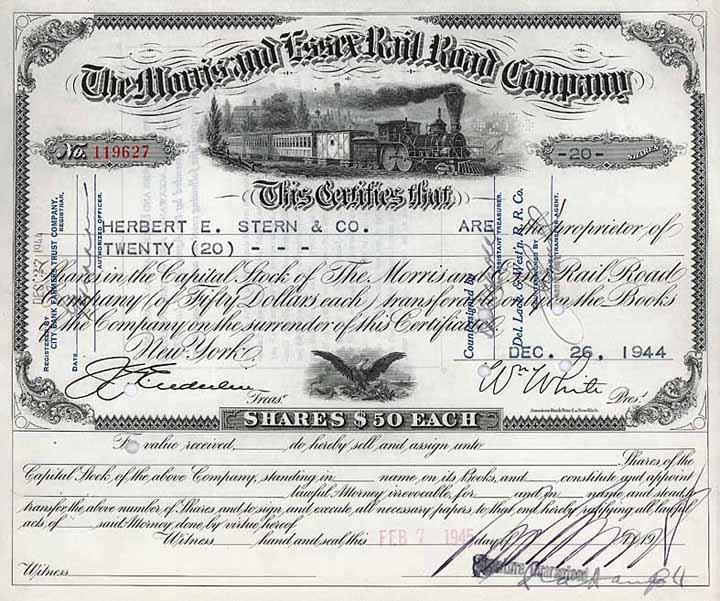 The Morris and Essex Rail Road Company
No. 119627
-20- SHARES
This Certifies that
HERBERT E. STERN & CO. ARE the proprietor of
TWENTY (20) - - -
Shares in the Capital Stock of The Morris and Rail Road
Company (of Fifty Dollars each) transferable in the Books
of the Company on the surrender of this Certificate.
New York DEC. 26, 1944
REGISTERED
CITY BANK FARMERS TRUST COMPANY,
REGISTRAR,
DATE
AUTHORIZED OFFICER.
DEC 27 1944
Countersigned by
ASSISTANT TREASURER.
Del. Lack. & West'n. R. R. Co.
TRANSFER AGENT.
Treasr.
Wm White Prest.
American Bank Note Co. New York.
SHARES $50 EACH
To value received, do hereby sell and assign unto
Shares of the
Capital Stock of the above Company, standing in name, on its Books, and constitute and appoint
lawful Attorney, irrevocable, for and in name and stead, to
transfer the above number of Shares and to sign and execute all necessary papers to that end, hereby ratifying all lawful
acts of said Attorney done by virtue hereof.
Witness hand and seal, this FEB 7 1945 day of 19
Signature Guaranteed
Witness